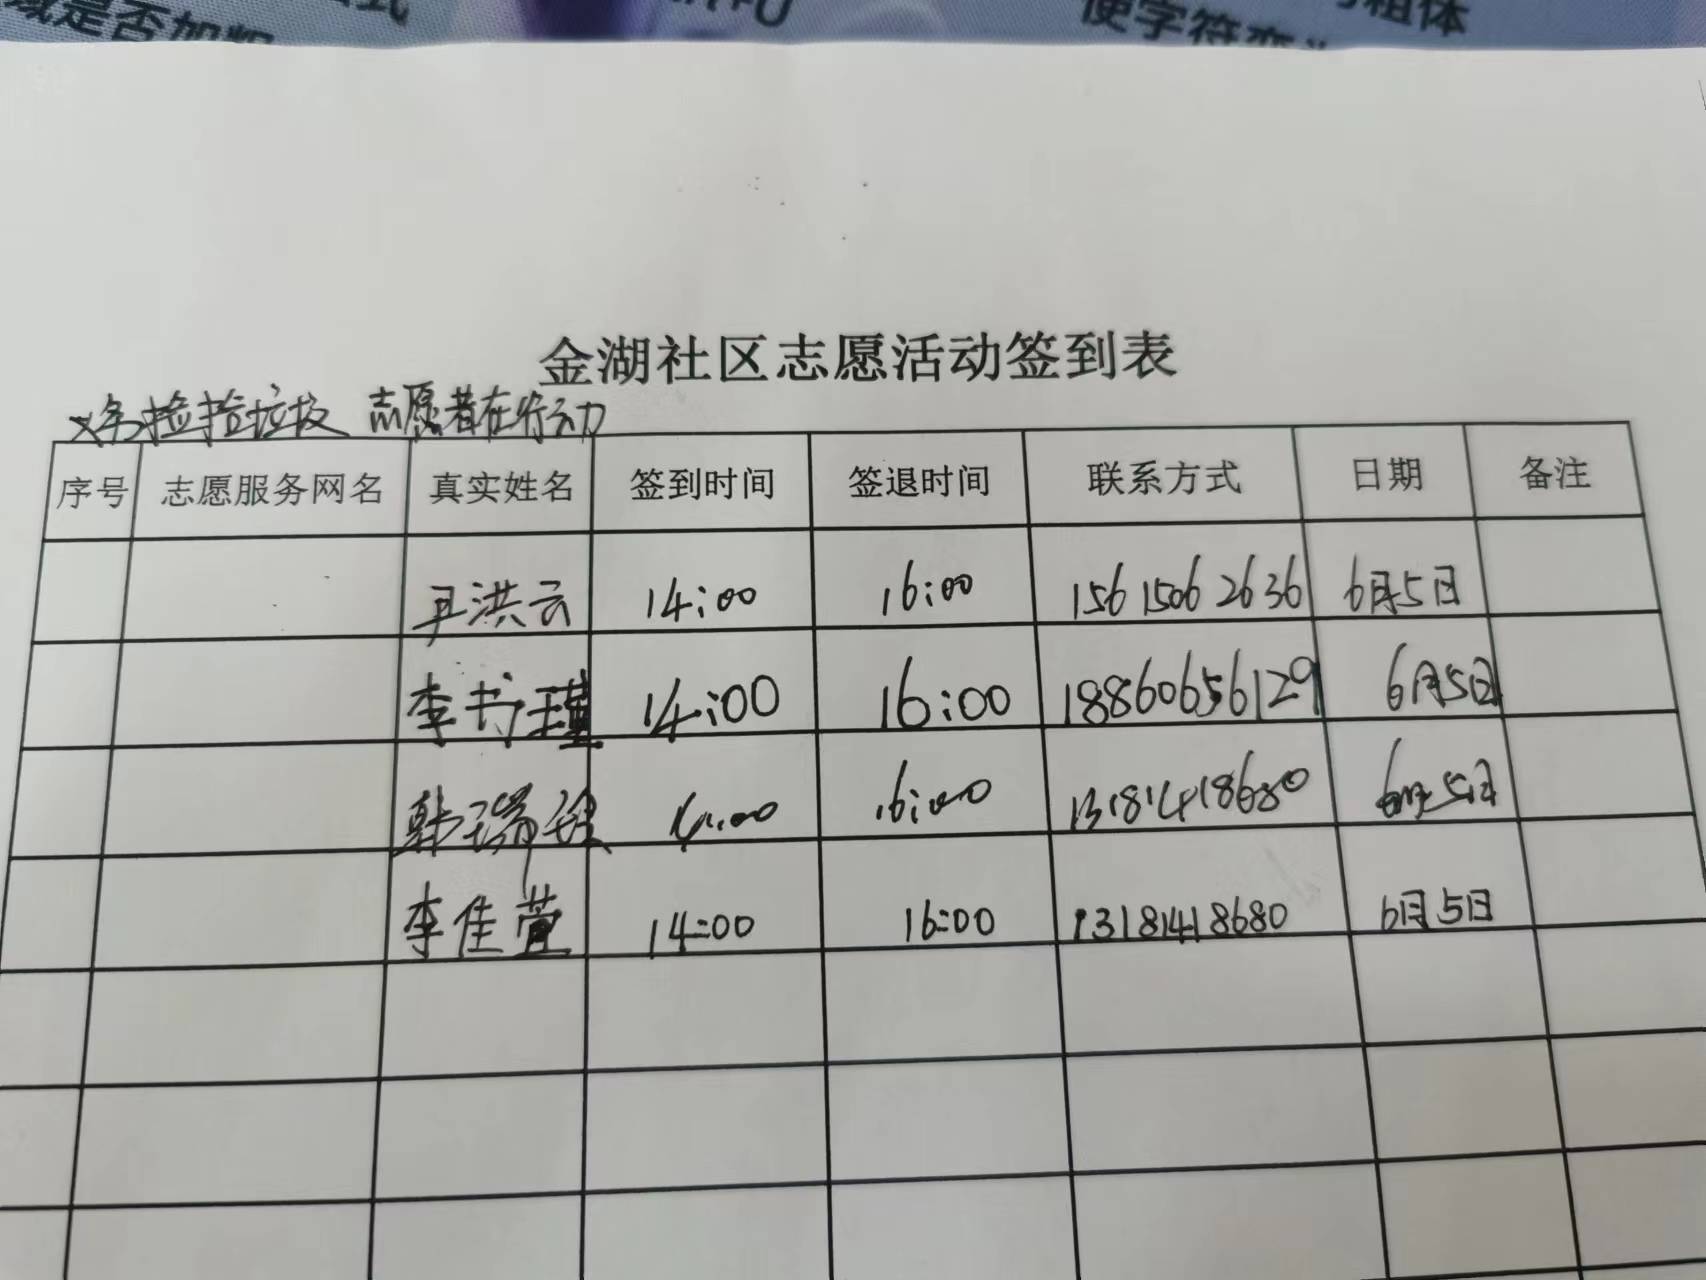 域是否加粗
使字符变
粗体
金湖社区志愿活动签到表
捡捡垃圾 志愿者在行动
序号 志愿服务网名 真实姓名 签到时间 签退时间 联系方式 日期 备注
洪云 14:00 16:00 15615062636 6月5日
李书瑾 14:00 16:00 18860656129 6月5日
韩瑞 14:00 16:00 13181418680 6月5日
李佳萱 14:00 16:00 13181418680 6月5日